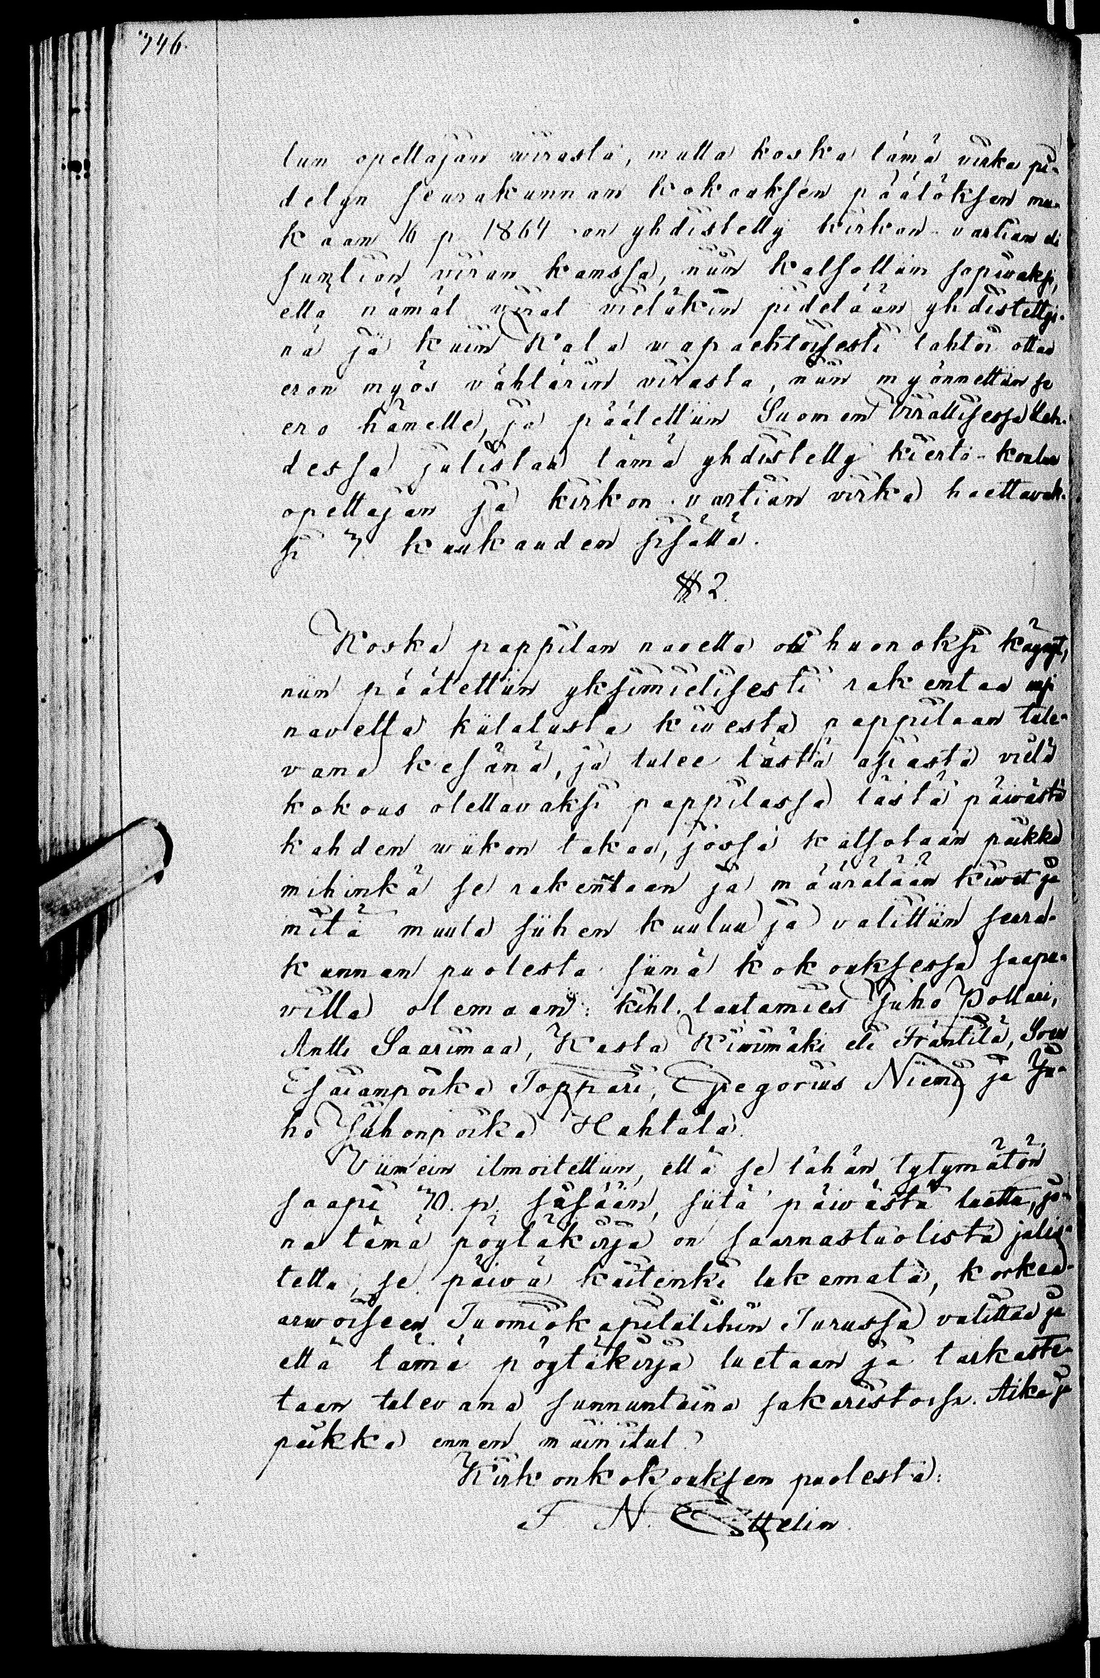 746.
lun opettajan wirasta, mutta koska tämä virka pi-
detyn seurakunnan kokouksen päätöksen mu-
kaan 16 p. 1864 on yhdistetty kirkon-vartian eli
suntion viran kanssa, niin katsottiin sopiwaksi,
että nämät virat vieläkin pidetään yhdistettyi-
nä ja kuin Kala wapaehtoisesti tahtoi ottaa
eron myös vahtärin virasta, niin myönnettiin se
ero hänelle, ja päätettiin Suomen Virallisessa Leh-
dessä julistaa tämä yhdistetty kierto-koulu
opettajan ja kirkon-vartian virka haettavak-
si 7 kuukauden sisällä.
§ 2.
Koska pappilan navetta oli huonoksi käynyt,
niin päätettiin yksimielisesti rakentaa uusi
navetta kiilatusta kiwestä pappilaan tule-
vana kesänä, ja tulee tästä asiasta vielä
kokous olettavaksi pappilassa tästä päiwästä
kahden wiikon takaa, jossa katsotaan paikka
mihinkä se rakentaan ja määrätään kiwet ja
mitä muuta siihen kuuluu ja valittiin seura-
kunnan puolesta siinä kokouksessa saapu-
villa olemaan: kihl. lautamies Juho Pollari,
Antti Saarimaa, Kasta Kiwimäki eli Fräntilä,
Esaianpoika Toppari, Gregorius Niemi ja Ju-
ho Juhonpoika Hahtala.
Viimein ilmoitettiin, että se tähän tytymätön
saapi 30 p. sisään, siitä päiwästä luettu, jo-
na tämä pöytäkirja on saarnastuolista julis-
tettu, se päivä kuitenki lukemata, korkea-
arwoiseen Tuomiokapitaliihin Turussa valittaa ja
että tämä pöytäkirja luetaan ja tarkaste-
taan tulevana sunnuntaina sakaristossa. Aika ja
paikka ennen mainitut.
Kirkonkokouksen puolesta:
F. N.